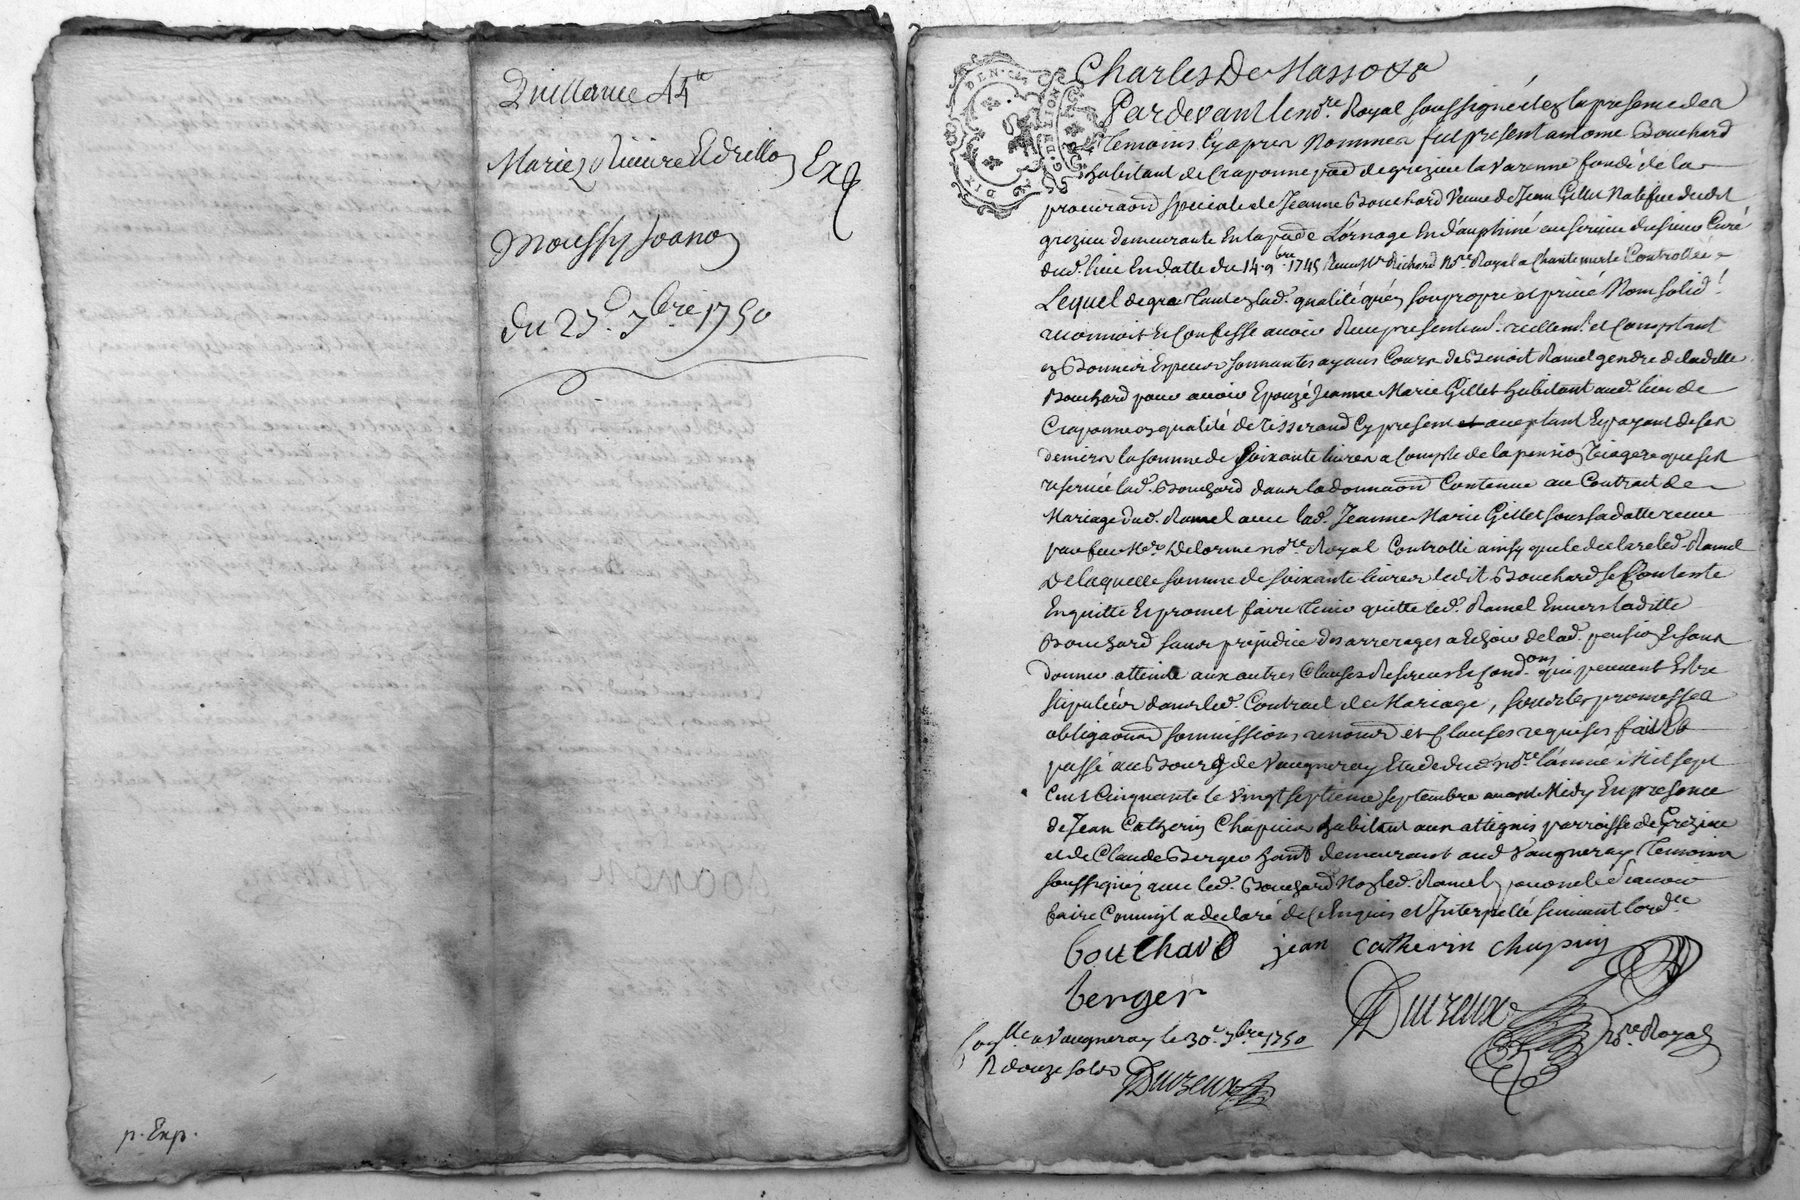 Quittance 44te
Marie Riviere
Ex
Moussy
du 27e 7bre 1750
p. Exp.
G. DE LION
DEN
DIX
Charles De Masso &a
Pardevant le nore. Royal soussigné et ez la presence des
temoins cy apres nommes fut present antome Bouchard
habitant de Craponne parr. de grezieu la Varenne fondé de la
procuraon speciale de Jeanne Bouchard Veuve de Jean Gillet Natifve dudt
grezieu demeurante En la parr. de Lornage En dauphiné au service du sieur Curé
dud. lieu En datte du 14. 9bre. 1745 Receu Mr Richard Nore. Royal a Chantemerle Controllée
Lequel de gré tant ez lad. qualité qu'en son propre et privé Nom solid.
reconnoit Et Confesse avoir Receu presentemt. reellemt. et Comptant
En Bonnes Especes sonnantes ayans Cours de Benoit Ramel gendre de laditte
Bouchard pour avoir Epouzé Jeanne Marie Gillet habitant aud. lieu de
Craponne en qualité de Tisserand Cy present et acceptant Et payant de ses
deniers la somme de soixante livres a Compte de la pension viagere que s'est
reservée lad. Bouchard dans la donnaon Contenue au Contrat de
Mariage dud. Ramel avec lad. Jeanne Marie Gillet sous sa datte receu
par feu Mer Delorme nore Royal Controllé ainsy que le declare led. Ramel
De laquelle somme de soixante livres ledit Bouchard se Contente
En quitte Et promet faire tenir quitte led. Ramel Envers laditte
Bouchard sans prejudice des arrerages a Echoir de lad. pension Et sans
donner atteinte aux autres Clauses Reserves Et Condons. qui peuvent Estre
stipulées dans led. Contrat de Mariage, sous les promesses
obligaons soumissions renons et Clauses requises fait &
passé au Bourg de Vaugneray Etude dud. nore. l'année Mil sept
Cent Cinquante le vingt septieme septembre avant Midy En presence
de Jean Catherin Chapuis habitant aux attignis parroisse de Grezieu
et de Claude Berger hant demeurant aud Vaugneray temoins
soussignez avec led. Bouchard Non led. Ramel pour ne le sçavoir
faire Comm'il a declaré de ce Enquis et Interpellé suivant l'ordce
bouchard jean catherin chapuis
berger
Duzeux nore. Royal
Conllé a Vaugneray le 30e. 7bre 1750
R douze sols
Duzeux